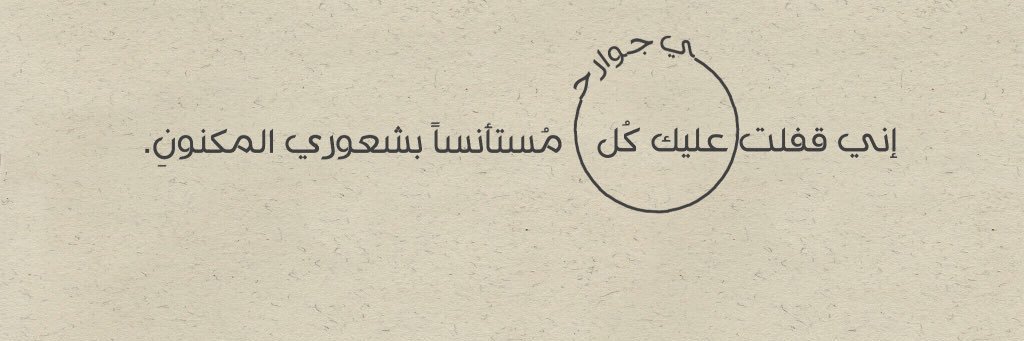 إني قفلت عليك كُل جوارحي مُستأنساً بشعوري المكنونِ.